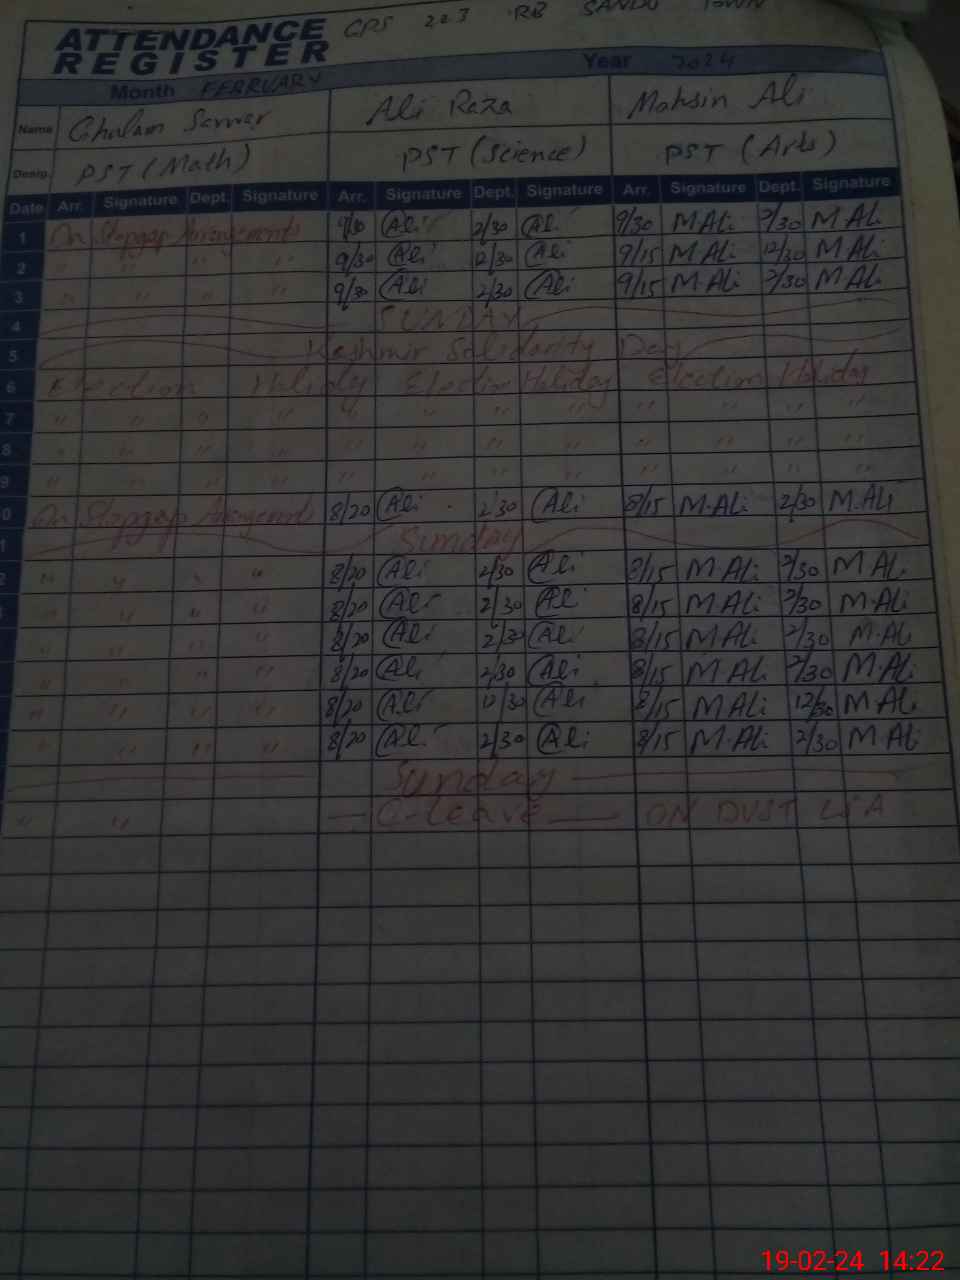 ATTENDANCE GPS 223 RB SANDU TOWN
REGISTER
Month FEBRUARY Year 2024
Name Ghulam Sarwar Ali Raza Mohsin Ali
Desig. PST (Math) PST (Science) PST (Arts)
Date Arr. Signature Dept. Signature Arr. Signature Dept. Signature Arr. Signature Dept. Signature
1 On Stopgap Arrangements 9/30 Ali 2/30 Ali 9/30 M Ali 2/30 M Ali
2 " " " " 9/30 Ali 12/30 Ali 9/15 M Ali 12/30 M Ali
3 " " " " 9/30 Ali 2/30 Ali 9/15 M Ali 2/30 M Ali
4 SUNDAY
5 Kashmir Solidarity Day
6 Election Holiday Election Holiday Election Holiday
7 " " " " " " " " " " " "
8 " " " " " " " " " " " "
9 " " " " " " " " " " " "
0 On Stopgap Arrangements 8/20 Ali 2/30 Ali 8/15 M.Ali 2/30 M.Ali
1 Sunday
2 " " " " 8/20 Ali 2/30 Ali 8/15 M.Ali 2/30 M Ali
" " " " 8/20 Ali 2/30 Ali 8/15 M.Ali 2/30 M.Ali
" " " " 8/20 Ali 2/30 Ali 8/15 M Ali 2/30 M.Ali
" " " " 8/20 Ali 2/30 Ali 8/15 M.Ali 2/30 M.Ali
" " " " 8/20 Ali 12/30 Ali 8/15 M Ali 12/30 M Ali
" " " " 8/20 Ali 2/30 Ali 8/15 M.Ali 2/30 M Ali
Sunday
" " C-leave ON DUST LSA
19-02-24 14:22